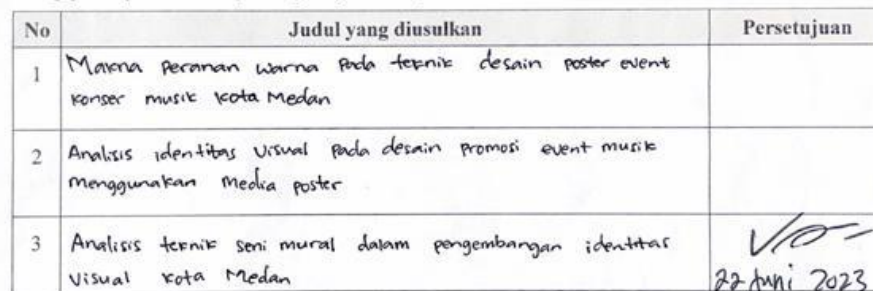 No Judul yang diusulkan Persetujuan
1 Makna peranan warna pada teknik desain poster event
konser musik kota Medan
2 Analisis identitas visual pada desain promosi event musik
menggunakan media poster
3 Analisis teknik seni mural dalam pengembangan identitas
visual kota Medan
22 Juni 2023